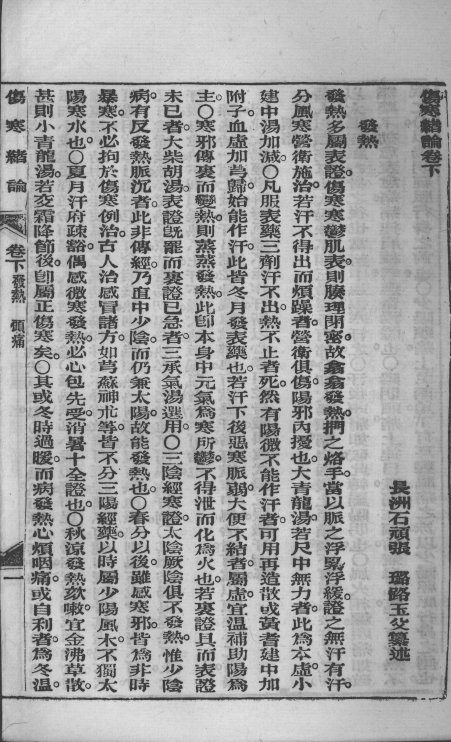 傷寒緒論卷下
長洲石頑張　璐路玉父纂述
發熱
發熱多屬表證。傷寒寒鬱肌表。則腠理閉密。故翕翕發熱。捫之烙手。當以脈之浮緊浮緩。證之無汗有汗。
分風寒營衛施治。若汗不得出而煩躁者。營衛俱傷。陽邪內擾也。大青龍湯。若尺中無力者。此為本虛。小
建中湯加減。○凡服表藥三劑。汗不出。熱不止者死。然有陽微不能作汗者。可用再造散。或黃耆建中加
附子。血虛加芎歸。始能作汗。此皆冬月發表藥也。若汗下後惡寒。脈弱。大便不結者。屬虛。宜溫補助陽為
主。○寒邪傳裏而變熱。則蒸蒸發熱。此卽本身中元氣為寒所鬱。不得泄而化為火也。若裏證且而表證
未已者。大柴胡湯。表證旣罷而裏證已急者。三承氣湯選用。○三陰經寒證。太陰厥陰俱不發熱。惟少陰
病有反發熱脈沉者。此非傳經。乃直中少陰而仍兼太陽。故能發熱也。○春分以後。雖感寒邪。皆為非時
暴寒。不必拘於傷寒例治。古人治感冒諸方。如芎蘇神朮等。皆不分三陽經藥。以時屬少陽風木。不獨太
陽寒水也。○夏月汗府疎豁。偶感微寒發熱。必心包先受。消暑十全證也。○秋涼發熱欬嗽。宜金沸草散。
甚則小青龍湯。若交霜降節後。卽屬正傷寒矣。○其或冬時過暖而病發熱心煩咽痛。或自利者。為冬溫。
傷寒緒論　卷下發熱　頭痛　一